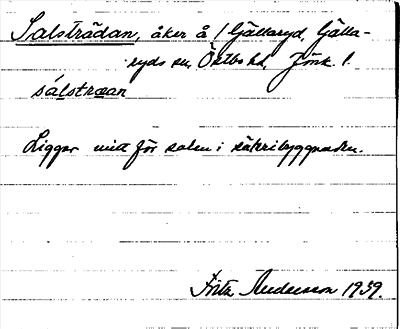 Salsträdan, åker å 1 Gällaryd, Gälla-
ryds sn, Östbo hd, Jönk. l.
sálstraan
Ligger mitt för salen i säteribyggnaden.
Fritz Andersson 1939.